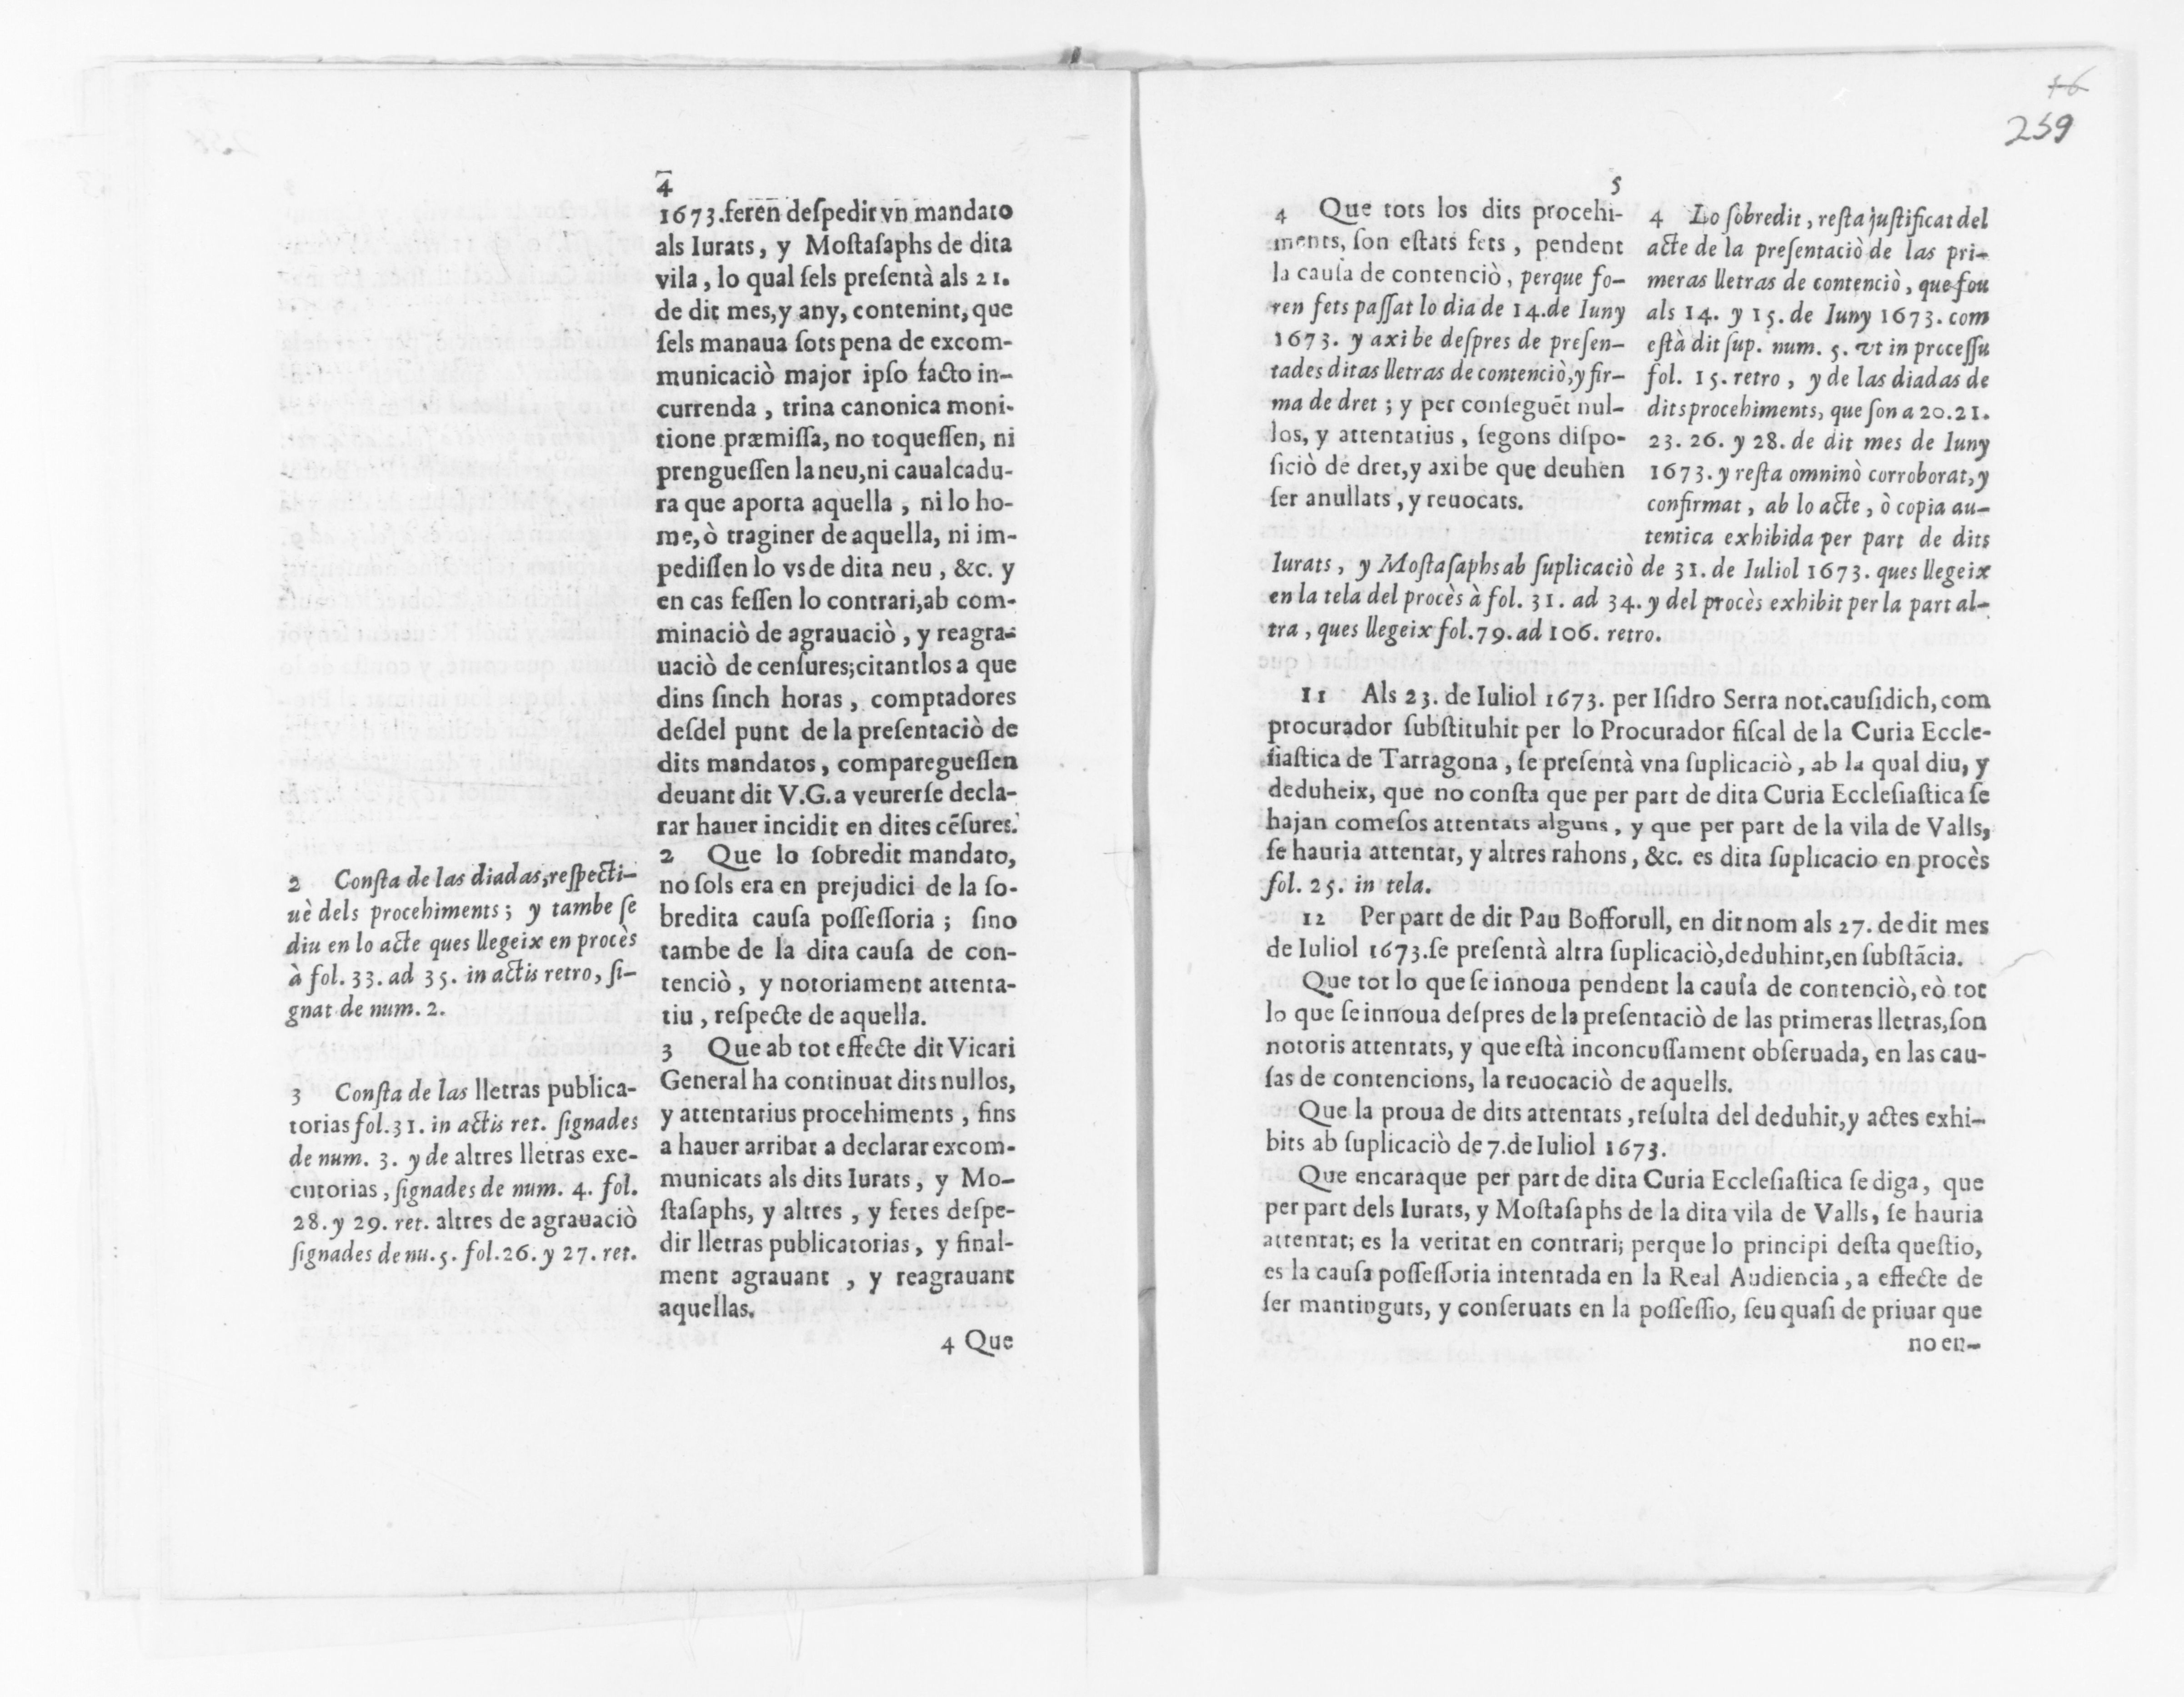 4
1673.feren deſpedir vn mandato
als Iurats, y Moſtaſaphs de dita
vila, lo qual ſels preſentà als 21.
de dit mes, y any, contenint, que
ſels manaua ſots pena de excom-
municaciò major ipſo facto in-
currenda, trina canonica moni-
tione præmiſſa, no toqueſſen, ni
prengueſſen la neu, ni caualcadu-
ra que aporta aquella, ni lo ho-
me, ò traginer de aquella, ni im-
pediſſen lo vs de dita neu, &c. y
en cas feſſen lo contrari, ab com-
minaciò de agrauaciò, y reagra-
uaciò de cenſures; citantlos a que
dins ſinch horas, comptadores
deſdel punt de la preſentaciò de
dits mandatos, comparegueſſen
deuant dit V.G. a veurerſe decla-
rar hauer incidit en dites cẽſures.
2 Que lo ſobredit mandato,
no ſols era en prejudici de la ſo-
bredita cauſa poſſeſſoria; ſino
tambe de la dita cauſa de con-
tenciò, y notoriament attenta-
tiu, reſpecte de aquella.
3 Que ab tot effecte dit Vicari
General ha continuat dits nullos,
y attentarius procehiments, fins
a hauer arribat a declarar excom-
municats als dits Iurats, y Mo-
ſtaſaphs, y altres, y fetes deſpe-
dir lletras publicatorias, y final-
ment agrauant, y reagrauant
aquellas.
4 Que
2 Conſta de las diadas, reſpecti-
uè dels procehiments; y tambe ſe
diu en lo acte ques llegeix en procès
à fol. 33. ad 35. in actis retro, ſi-
gnat de num. 2.
3 Conſta de las lletras publica-
torias fol. 31. in actis ret. ſignades
de num. 3. y de altres lletras exe-
cutorias, ſignades de num. 4. fol.
28. y 29. ret. altres de agrauaciò
ſignades de nu. 5. fol. 26. y 27. ret.
259
5
4 Que tots los dits procehi-
ments, ſon eſtats fets, pendent
la cauſa de contenciò, perque fo-
ren fets paſſat lo dia de 14. de Iuny
1673. y axi be deſpres de preſen-
tades ditas lletras de contenciò, y fir-
ma de dret; y per conſeguẽt nul-
los, y attentatius, ſegons diſpo-
ſiciò de dret, y axi be que deuhen
ſer anullats, y reuocats.
4 Lo ſobredit, reſta juſtificat del
acte de la preſentaciò de las pri-
meras lletras de contenciò, que fou
als 14. y 15. de Iuny 1673. com
eſtà dit ſup. num. 5. vt in proceſſu
fol. 15. retro, y de las diadas de
dits procehiments, que ſon a 20. 21.
23. 26. y 28. de dit mes de Iuny
1673. y reſta omninò corroborat, y
confirmat, ab lo acte, ò copia au-
tentica exhibida per part de dits
Iurats, y Moſtaſaphs ab ſuplicaciò de 31. de Iuliol 1673. ques llegeix
en la tela del procès à fol. 31. ad 34. y del procès exhibit per la part al-
tra, ques llegeix fol. 79. ad 106. retro.
11 Als 23. de Iuliol 1673. per Iſidro Serra not. cauſidich, com
procurador ſubſtituhit per lo Procurador fiſcal de la Curia Eccle-
ſiaſtica de Tarragona, ſe preſentà vna ſuplicaciò, ab la qual diu, y
deduheix, que no conſta que per part de dita Curia Eccleſiaſtica ſe
hajan comeſos attentats alguns, y que per part de la vila de Valls,
ſe hauria attentat, y altres rahons, &c. es dita ſuplicacio en procès
fol. 25. in tela.
12 Per part de dit Pau Bofforull, en dit nom als 27. de dit mes
de Iuliol 1673. ſe preſentà altra ſuplicaciò, deduhint, en ſubſtãcia.
Que tot lo que ſe innoua pendent la cauſa de contenciò, eò tot
lo que ſe innoua deſpres de la preſentaciò de las primeras lletras, ſon
notoris attentats, y que eſtà inconcuſſament obſeruada, en las cau-
ſas de contencions, la reuocaciò de aquells.
Que la proua de dits attentats, reſulta del deduhit, y actes exhi-
bits ab ſuplicaciò de 7. de Iuliol 1673.
Que encaraque per part de dita Curia Eccleſiaſtica ſe diga, que
per part dels Iurats, y Moſtaſaphs de la dita vila de Valls, ſe hauria
attentat; es la veritat en contrari; perque lo principi deſta queſtio,
es la cauſa poſſeſſoria intentada en la Real Audiencia, a effecte de
ſer mantinguts, y conſeruats en la poſſeſſio, ſeu quaſi de priuar que
no en-